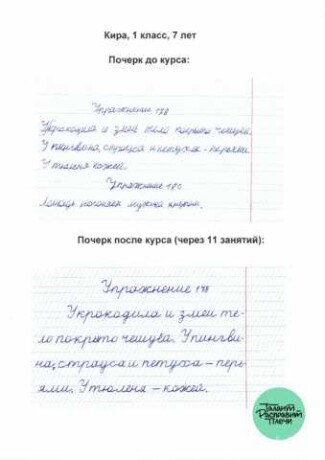 Кира, 1 класс, 7 лет
Почерк до курса:
Упражнение 178
У крокодила и змеи тело покрыто чешуёй.
У пингвина, страуса и петуха - перьями.
У тюленя кожей.
Упражнение 180
Лошадь погоняет мужик кнутом.
Почерк после курса (через 11 занятий):
Упражнение 178
У крокодила и змеи те-
ло покрыто чешуёй. У пингви-
на, страуса и петуха – перь-
ями. У тюленя – кожей.
Талант
Расправит
Плечи